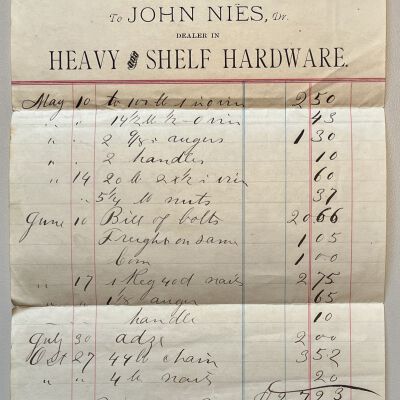 To JOHN NIES, Dr.
DEALER IN
HEAVY and SHELF HARDWARE.
May 10 to 100 lb iron 2 50
" " 14 1/2 lb 1/2 iron 43
" " 2 augers 1 30
" " 2 handles 10
" 14 20 lb iron 60
" " 5 1/4 lb nuts 37
June 10 Bill of bolts 20 66
Freight on same 1 05
1 00
" 17 1 Keg 40d nails 2 75
auger 65
handle 10
July 30 adze 2 00
Oct 27 44 lb chain 3 52
" " 4 lb nails 20